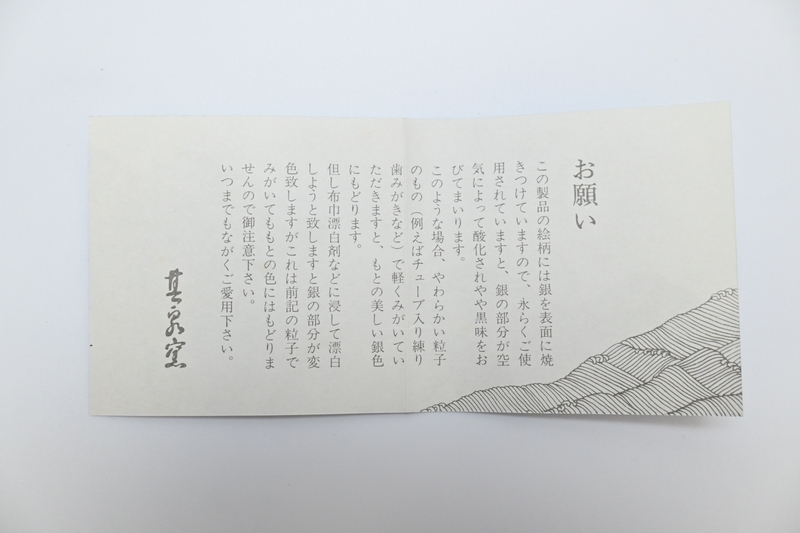 お願い
この製品の絵柄には銀を表面に焼
きつけていますので、永らくご使
用されていますと、銀の部分が空
気によって酸化されやや黒味をお
びてまいります。
このような場合、やわらかい粒子
のもの（例えばチューブ入り練り
歯みがきなど）で軽くみがいてい
ただきますと、もとの美しい銀色
にもどります。
但し布巾漂白剤などに浸して漂白
しようと致しますと銀の部分が変
色致しますがこれは前記の粒子で
みがいてももとの色にはもどりま
せんので御注意下さい。
いつまでもながくご愛用下さい。
其泉窯